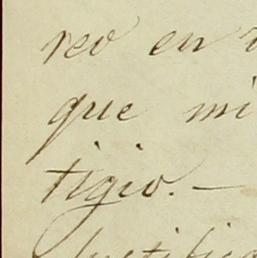 reo en
que mi
tigio. —